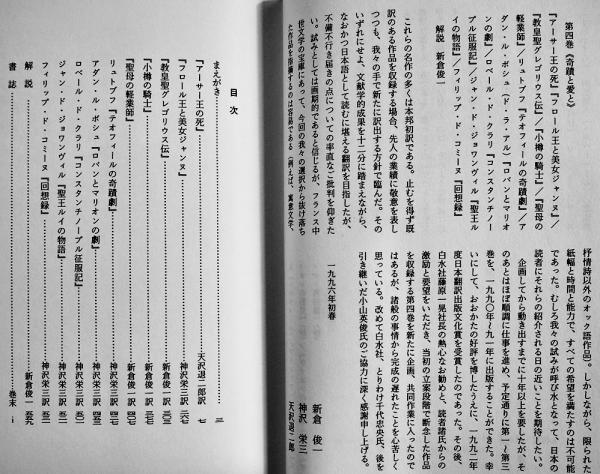 第四巻《奇蹟と愛と》
『アーサー王の死』／『フロール王と美女ジャンヌ』／
『教皇聖グレゴリウス伝』／『小樽の騎士』／『聖母の
軽業師』／リュトブフ『テオフィールの奇蹟劇』／ア
ダン・ル・ボシュ（ド・ラ・アル）『ロバンとマリオ
ンの劇』／ロベール・ド・クラリ『コンスタンチノー
プル征服記』／ジャン・ド・ジョワンヴィル『聖王ル
イの物語』／フィリップ・ド・コミーヌ『回想録』
解説 新倉俊一
これらの名作の多くは本邦初訳である。止むを得ず既
訳のある作品を収録する場合、先人の業績に敬意を表し
つつも、我々の手で新たに訳出する方針で臨んだ。その
いずれにせよ、文献学的成果を十二分に踏まえながら、
なおかつ日本語として読むに堪える翻訳を目指したが、
不備不行き届きの点についての率直なご批判を仰ぎた
い。試みとしては画期的であると信じるが、フランス中
世文学の宝庫にあって、今回の我々の選択から抜け落ち
た作品を指摘するのは容易である（例えば、寓意文学、
抒情詩以外のオック語作品）。しかしながら、限られた
紙幅と時間と能力で、すべての希望を満たすのは不可能
であった。むしろ我々の試みが呼び水となって、日本の
読者にそれらの紹介される日の近いことを期待したい。
企画してから動き出すまでに十年以上を要したが、そ
のあとはほぼ順調に仕事を進め、予定通りに第一〜第三
巻を、一九九〇〜九一年に出版することができた。幸
いにして、おおかたの好評を博したうえに、一九九二年
度日本翻訳出版文化賞を受賞したのであった。その後、
白水社藤原一晃社長の熱心なお勧めと、読者諸氏からの
激励と要望をいただき、当初の立案段階で断念した作品
を収録する第四巻を新たに企画、共同作業に入ったので
はあるが、諸般の事情から完成の遅れたことを心苦しく
思っている。改めて白水社、とりわけ千代忠央氏、後を
引き継いだ小山英俊氏のご協力に深く感謝申し上げる。
一九九六年初春
新倉俊一
神沢栄三
天沢退二郎
目次
まえがき
『アーサー王の死』 天沢退二郎訳 七
『フロール王と美女ジャンヌ』 神沢栄三訳
『教皇聖グレゴリウス伝』 新倉俊一訳
『小樽の騎士』 新倉俊一訳
『聖母の軽業師』 新倉俊一訳
リュトブフ『テオフィールの奇蹟劇』 神沢栄三訳
アダン・ル・ボシュ『ロバンとマリオンの劇』 神沢栄三訳
ロベール・ド・クラリ『コンスタンチノープル征服記』
ジャン・ド・ジョワンヴィル『聖王ルイの物語』
フィリップ・ド・コミーヌ『回想録』
解説 新倉俊一
書誌 巻末・i